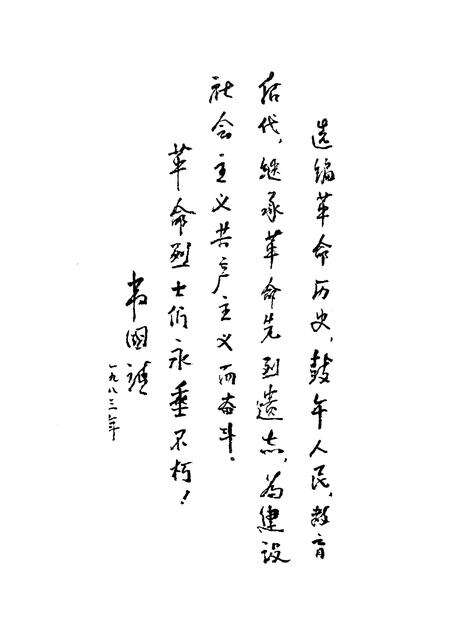 选编革命历史，鼓午人民，教育
后代，继承革命先烈遗志，为建设
社会主义共产主义而奋斗。
革命烈士们永垂不朽！
韦国清
一九八三年